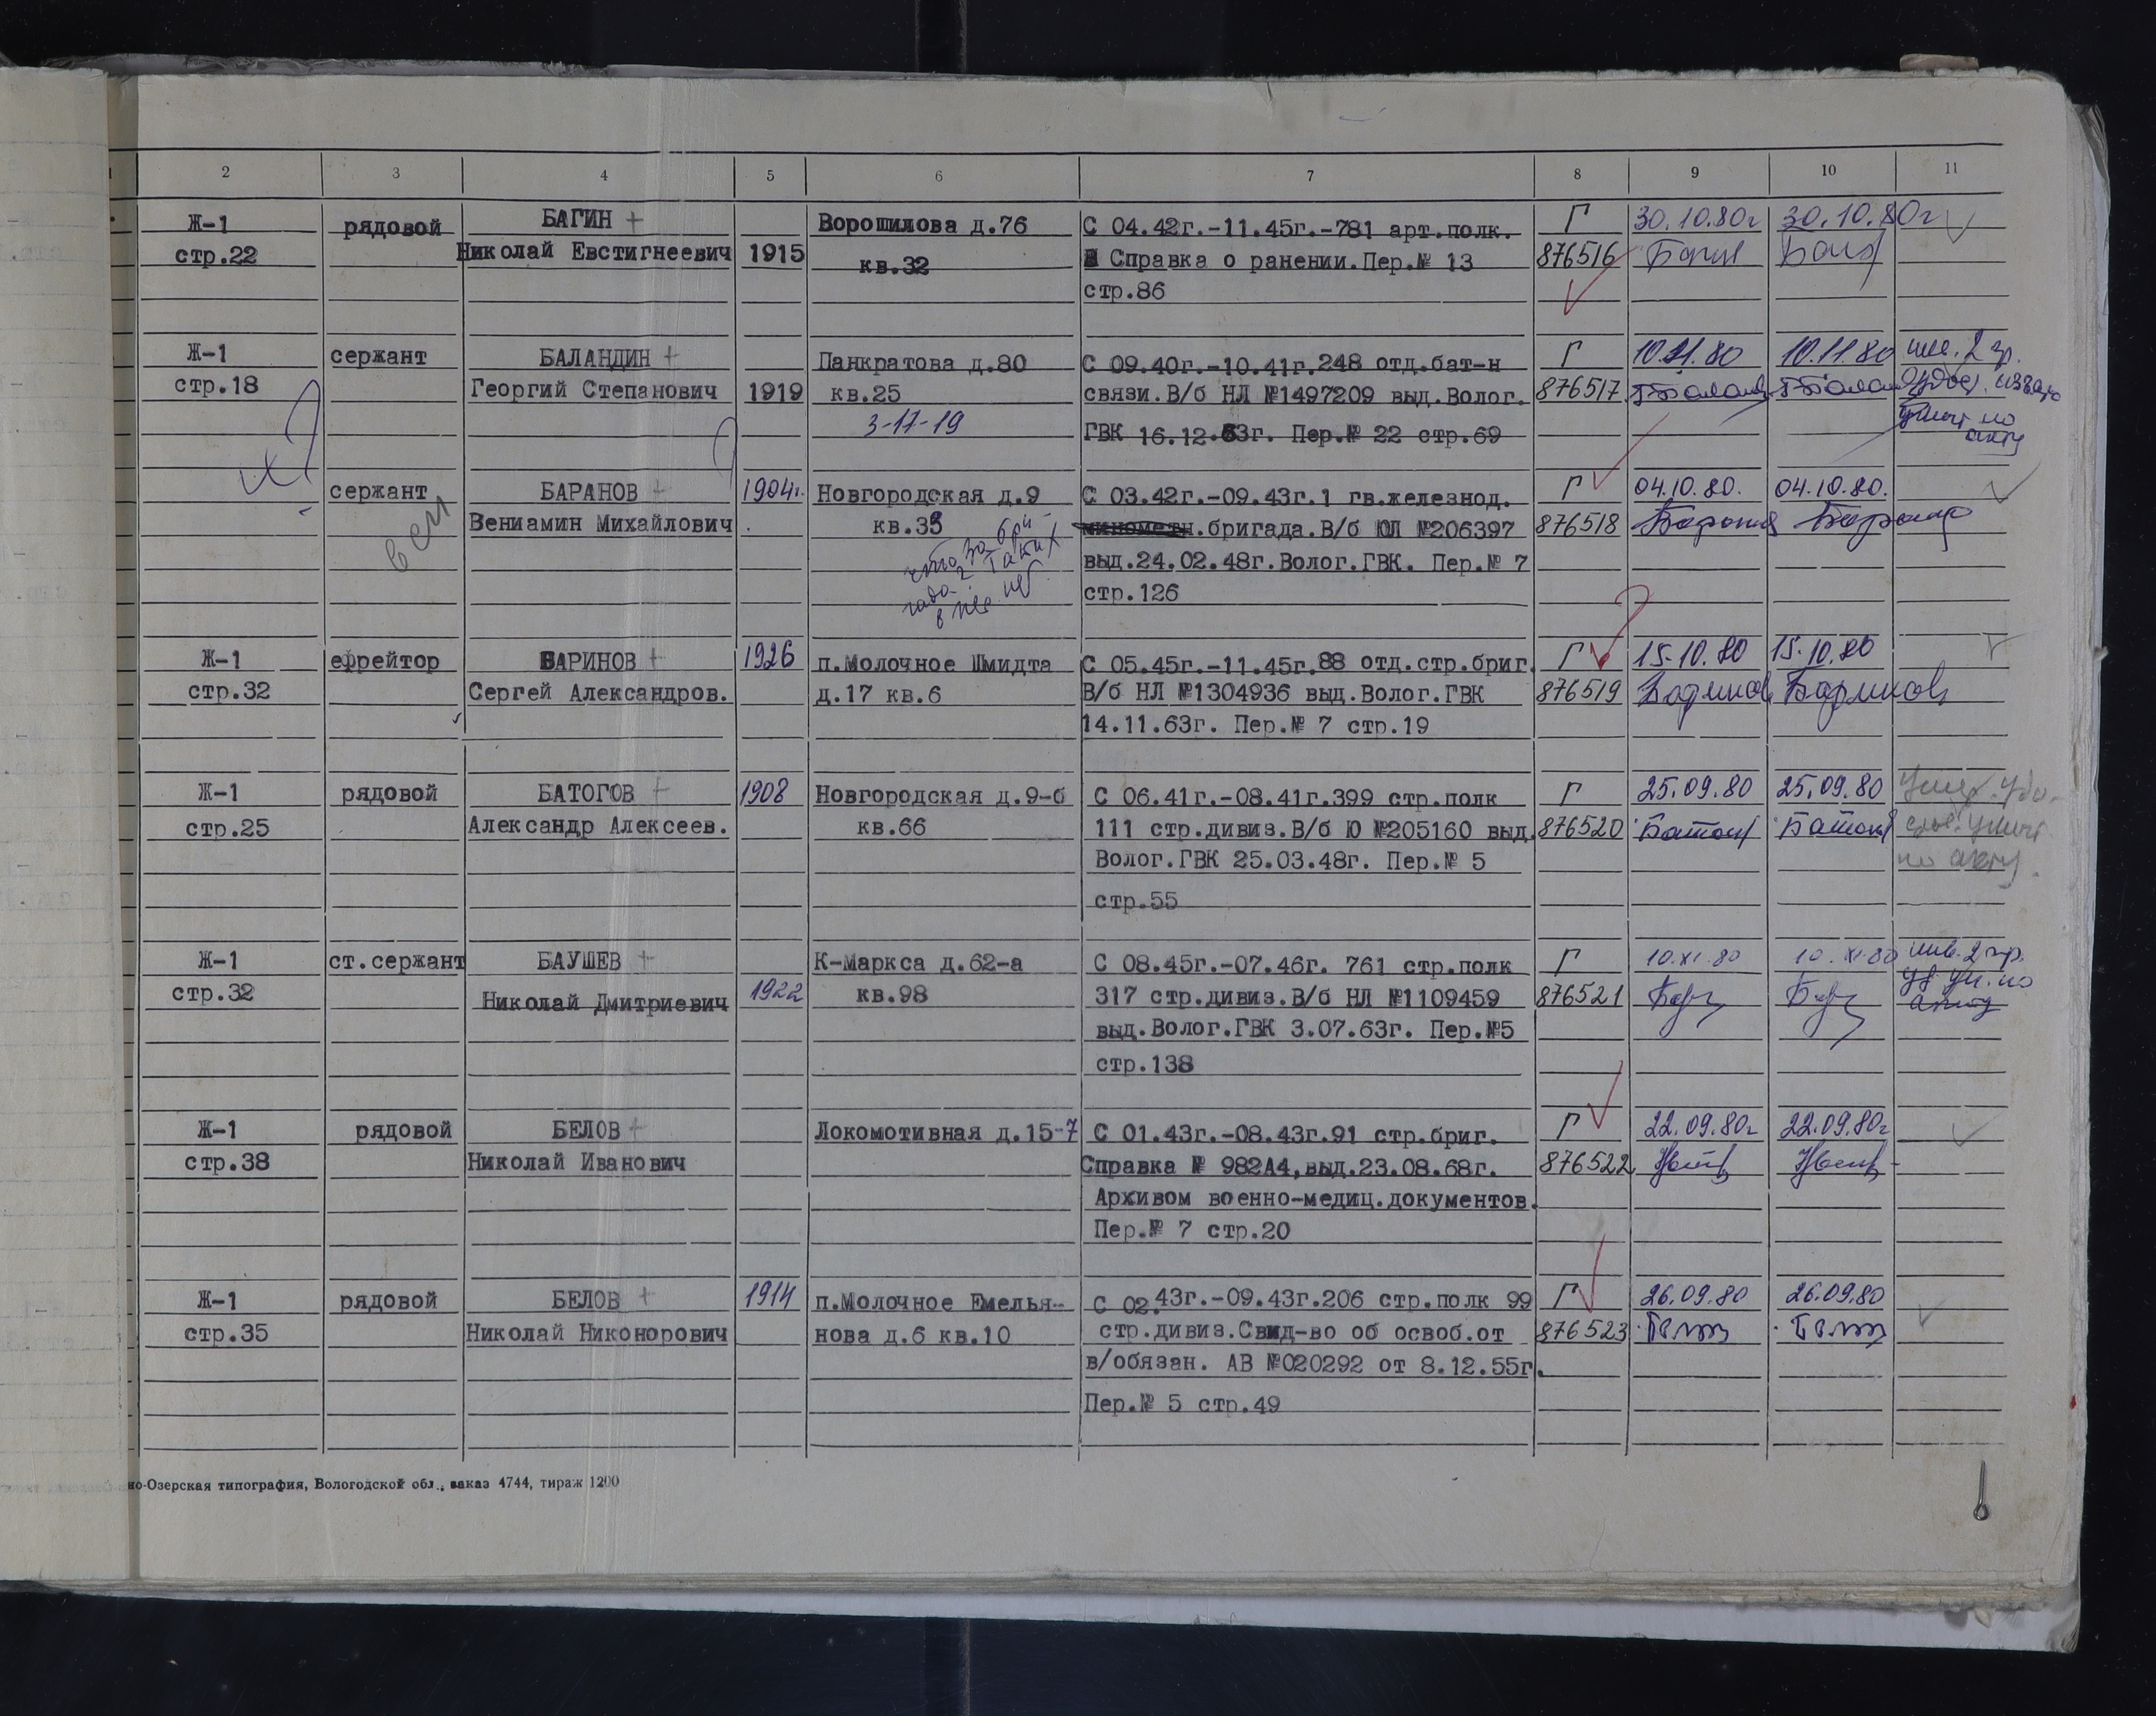 2 3 4 5 6 7 8 9 10 11
Ж-1 рядовой БАГИН + Ворошилова д.76 С 04.42г.-11.45г.-781 арт.полк. Г 30.10.80г 30.10.80г
стр.22 Николай Евстигнеевич 1915 кв.32 Справка о ранении.Пер.№ 13 876516
стр.86
Ж-1 сержант БАЛАНДИН + Панкратова д.80 С 09.40г.-10.41г.248 отд.бат-н Г 10.11.80 10.11.80 инв. 2 гр.
стр.18 Георгий Степанович 1919 кв.25 связи.В/б НЛ №1497209 выд.Волог. 876517
3-17-19 ГВК 16.12.63г. Пер.№ 22 стр.69 по
акту
сержант БАРАНОВ + 1904г. Новгородская д.9 С 03.42г.-09.43г.1 гв.железнод. Г 04.10.80. 04.10.80.
Вениамин Михайлович кв.35 .бригада.В/б ЮЛ №206397 876518 Баранов
что за бри-
гада? Таких выд.24.02.48г.Волог.ГВК. Пер.№ 7
нет стр.126
Ж-1 ефрейтор БАРИНОВ + 1926 п.Молочное Шмидта С 05.45г.-11.45г.88 отд.стр.бриг. Г 15.10.80 15.10.80
стр.32 Сергей Александров. д.17 кв.6 В/б НЛ №1304936 выд.Волог.ГВК 876519 Баринов Баринов
14.11.63г. Пер.№ 7 стр.19
Ж-1 рядовой БАТОГОВ + 1908 Новгородская д.9-б С 06.41г.-08.41г.399 стр.полк Г 25.09.80 25.09.80
стр.25 Александр Алексеев. кв.66 111 стр.дивиз.В/б Ю №205160 выд. 876520
Волог.ГВК 25.03.48г. Пер.№ 5 по акту.
стр.55
Ж-1 ст.сержант БАУШЕВ + К-Маркса д.62-а С 08.45г.-07.46г. 761 стр.полк Г 10.XI.80 10.XI.80 инв. 2 гр.
стр.32 Николай Дмитриевич 1922 кв.98 317 стр.дивиз.В/б НЛ №1109459 876521 уд. ун. по
выд.Волог.ГВК 3.07.63г. Пер.№5 акту
стр.138
Ж-1 рядовой БЕЛОВ + Локомотивная д.15-7 С 01.43г.-08.43г.91 стр.бриг. Г 22.09.80г 22.09.80г
стр.38 Николай Иванович Справка № 982А4,выд.23.08.68г. 876522
Архивом военно-медиц.документов.
Пер.№ 7 стр.20
Ж-1 рядовой БЕЛОВ + 1914 п.Молочное Емелья- С 02.43г.-09.43г.206 стр.полк 99 Г 26.09.80 26.09.80
стр.35 Николай Никонорович нова д.6 кв.10 стр.дивиз.Свид-во об освоб.от 876523
в/обязан. АВ №020292 от 8.12.55г.
Пер.№ 5 стр.49
но-Озерская типография, Вологодской обл., заказ 4744, тираж 1200